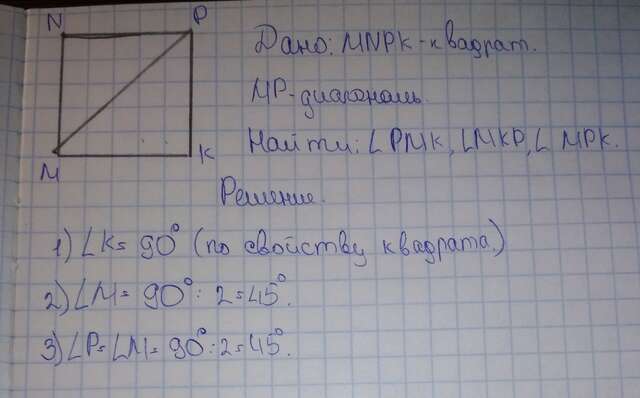 N P
Дано: MNPK - квадрат.
MP - диагональ.
M K
Найти: ∠PMK, ∠MKP, ∠ MPK.
Решение.
1) ∠K= 90° (по свойству квадрата)
2) ∠M= 90° : 2=45°.
3) ∠P=∠M= 90° : 2=45°.